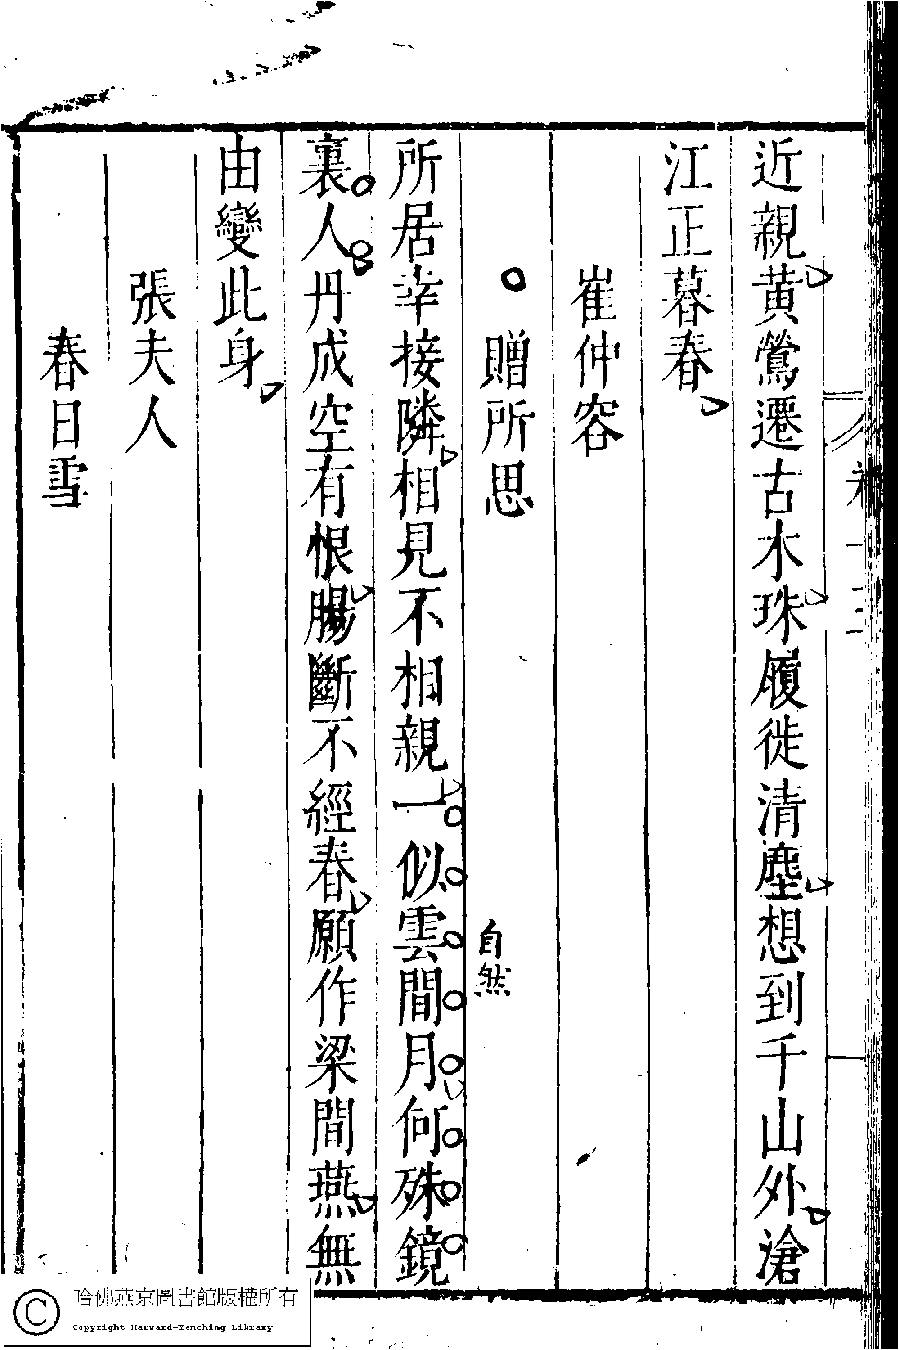 近親黄鶯遷古木珠履徙清塵想到千山外滄
江正暮春
崔仲容
贈所思
自然
所居幸接隣相見不相親一似雲間月何殊鏡
裏人丹成空有恨腸斷不經春願作梁間燕無
由變此身
張夫人
春日雪
哈佛燕京圖書館版權所有
Copyright Harvard-Yenching Library